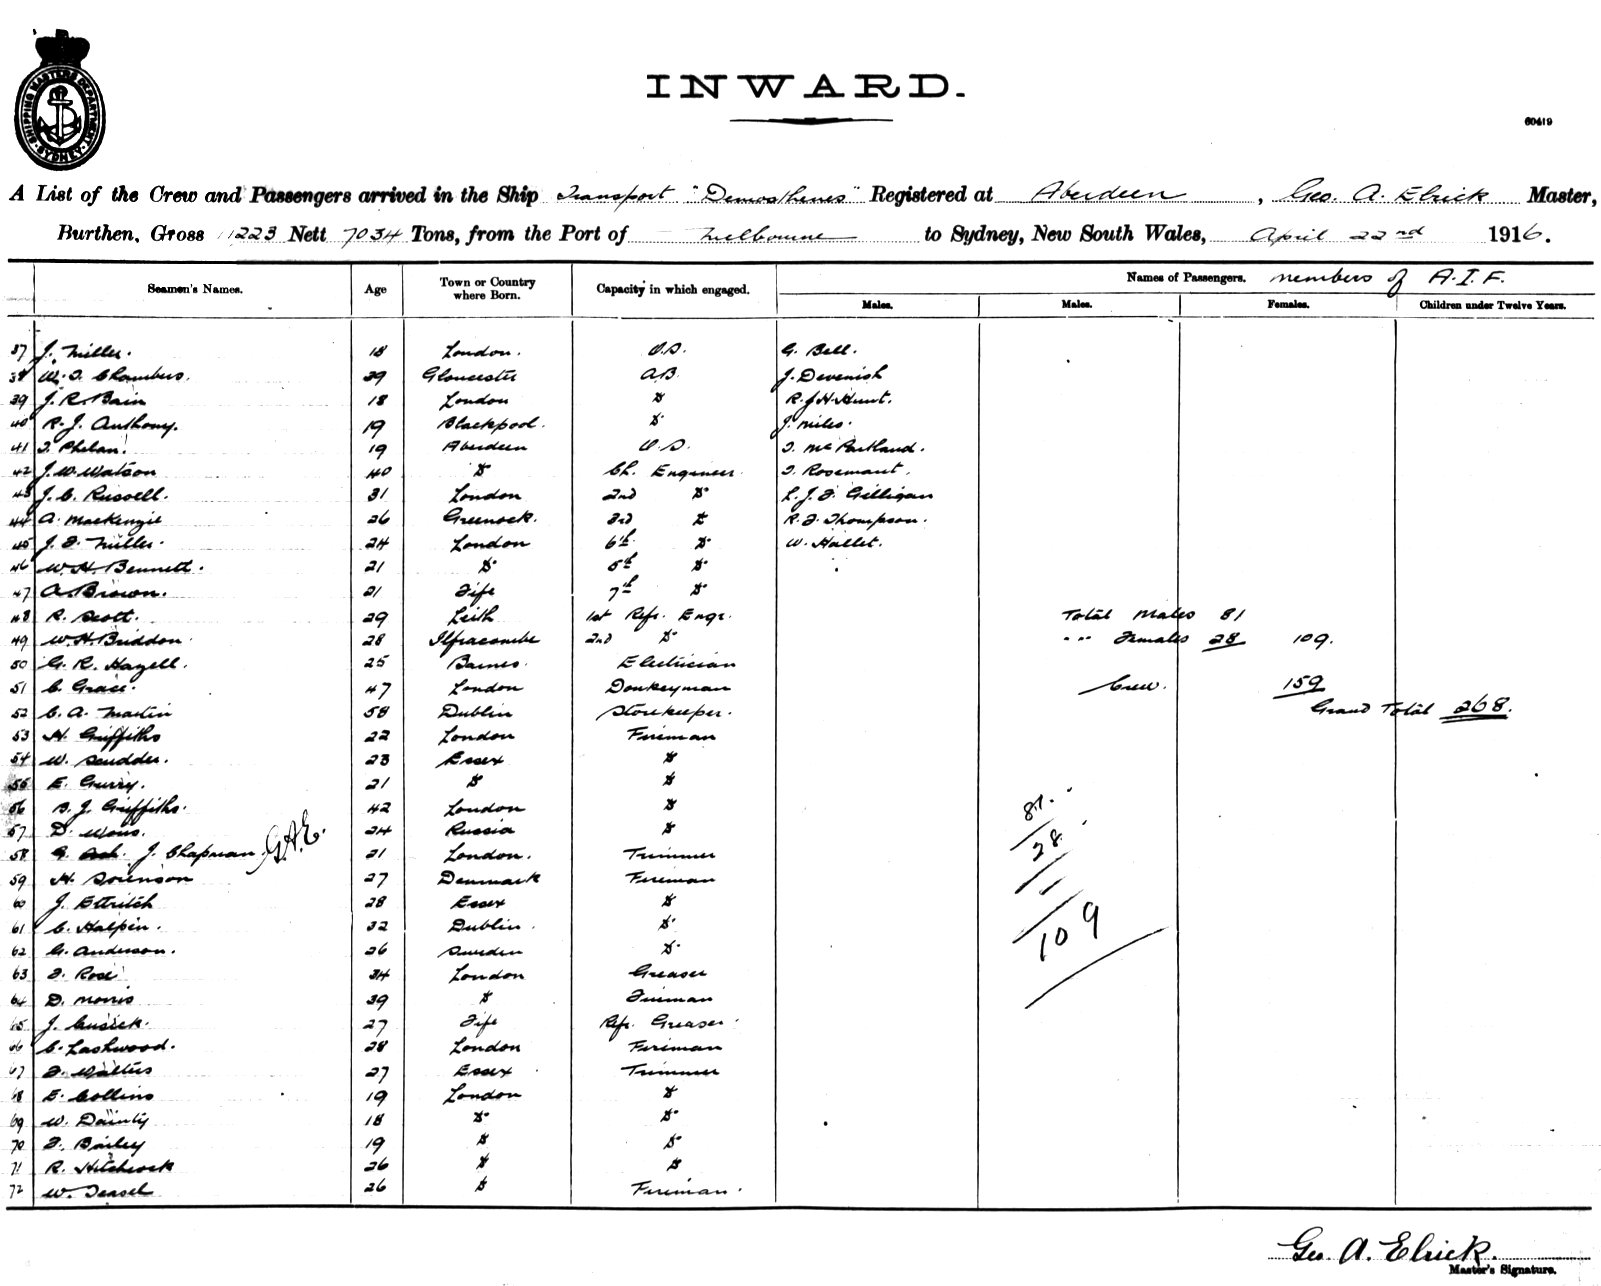 SHIPPING MASTERS DEPARTMENT · SYDNEY ·
INWARD.
60419
A List of the Crew and Passengers arrived in the Ship Transport "Demosthenes" Registered at Aberdeen, Geo. A. Elrick Master,
Burthen, Gross 11223 Nett 7034 Tons, from the Port of Melbourne to Sydney, New South Wales, April 22nd 1916.
Seamen's Names. Age Town or Country where Born. Capacity in which engaged. Names of Passengers. members of A.I.F.
Males. Males. Females. Children under Twelve Years.
37 J. Miller. 18 London. O.S. G. Bell.
38 W. T. Chambers. 39 Gloucester A.B. J. Devenish
39 J. R. Bain 18 London Do R. J. H. Hunt.
40 R. J. Anthony. 19 Blackpool. Do J. Miles.
41 T. Phelan. 19 Aberdeen O.S. T. McPartland.
42 J. W. Watson 40 Do Ch. Engineer. T. Rosemant.
43 J. C. Russell. 31 London 2nd Do L. J. F. Gilligan
44 A. MacKenzie 26 Greenock. 3rd Do R. F. Thompson.
45 J. F. Miller. 24 London 6th Do W. Hallet.
46 W. H. Bennett. 21 Do 5th Do
47 A. Brown. 21 Fife 7th Do
48 R. Scott. 29 Leith 1st Refr. Engr. Total Males 81
49 W. H. Briddon. 28 Ilfracombe 2nd Do " " Females 28 109.
50 G. R. Hazell. 25 Barnes. Electrician
51 C. Grace. 47 London Donkeyman Crew. 159
52 C. A. Martin 58 Dublin Storekeeper. Grand Total 268.
53 H. Griffiths 22 London Fireman
54 W. Scudder. 23 Essex Do
55 E. Gurry. 21 Do Do
56 B. J. Griffiths. 42 London Do 81.
57 D. 24 Russia Do 28
58 G. Ash. J. Chapman. G.A.E. 21 London. Trimmer
59 H. Sorenson 27 Denmark Fireman
60 J. Ettritch 28 Essex Do
61 C. Halpin. 32 Dublin. Do 109
62 G. Anderson. 26 Sweden Do
63 F. Rose 34 London Greaser
64 D. Morris 39 Do Fireman
65 J. Cusick. 27 Fife Refr. Greaser.
66 C. Lashwood. 28 London Fireman
67 F. Walters 27 Essex Trimmer
68 E. Collins 19 London Do
69 W. Dainty 18 Do Do
70 F. Bailey 19 Do Do
71 R. Hitchcock 26 Do Do
72 W. Teasel 26 Do Fireman.
Geo. A. Elrick.
Master's Signature.